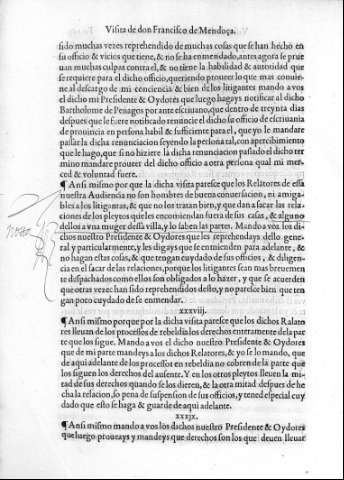 Visita de don Francisco de Mendoça.
sido muchas vezes reprehendido de muchas cosas que se han hecho en
su officio & vicios que tiene, & no se ha enmendado, antes agora se prue
uan muchas culpas contra el, & no tiene la habilidad & autoridad que
se requiere para el dicho officio, queriendo proueer lo que mas conuie-
ne al descargo de mi conciencia & bien de los litigantes mando a vos
el dicho mi Presidente & Oydores que luego hagays notificar al dicho
Bartholome de Penagos por ante escriuano, que dentro de treynta dias
despues que le fuere notificado renuncie el dicho su officio de escriuania
de prouincia en persona habil & sufficiente para el, que yo le mandare
passar la dicha renunciacion seyendo la persona tal, con apercibimiento
que le hago, que si no hiziere la dicha renunciacion passado el dicho ter
mino mandare proueer del dicho officio a otra persona qual mi mer-
ced & voluntad fuere.
¶ Ansi mismo por que por la dicha visita paresce que los Relatores de essa
nuestra Audiencia no son hombres de buena conuersacion, ni amiga-
bles a los litigantes, & que no los tratan bien, y que dan a sacar las rela-
ciones de los pleytos que les encomiendan fuera de sus casas, & alguno
dellos a vna muger dessa villa, y lo saben las partes. Mando a vos los di-
chos nuestro Presidente & Oydores que los reprehendays dello gene-
ral y particularmente, y les digays que se emienden para adelante, &
no hagan estas cosas, & que tengan cuydado de sus officios, & diligen-
cia en el sacar de las relaciones, porque los litigantes sean mas breuemen
te despachados como ellos son obligados a lo hazer, y que se acuerden
que otras vezes han sido reprehendidos desto, y no paresce bien que ten
gan poco cuydado de se emendar.
xxxviij.
¶ Ansi mismo porque por la dicha visita paresce que los dichos Ralato
res lleuan de los processos de rebeldia los derechos enteramente de la par
te que los sigue. Mando a vos el dicho nuestro Presidente & Oydores
que de mi parte mandeys a los dichos Relatores, & yo se lo mando, que
de aqui adelante de los processos en rebeldia no cobren de la parte que
los siguen los derechos del ausente. Y en los otros pleytos lleuen la mi-
tad de sus derechos quando se los dieren, & la otra mitad despues de he
cha la relacion, so pena de suspension de sus officios, y tened especial cuy
dado que esto se haga & guarde de aqui adelante.
xxxjx.
¶ Ansi mismo mando a vos los dichos nuestro Presidente & Oydores
que luego proueays y mandeys que derechos son los que deuen lleuar